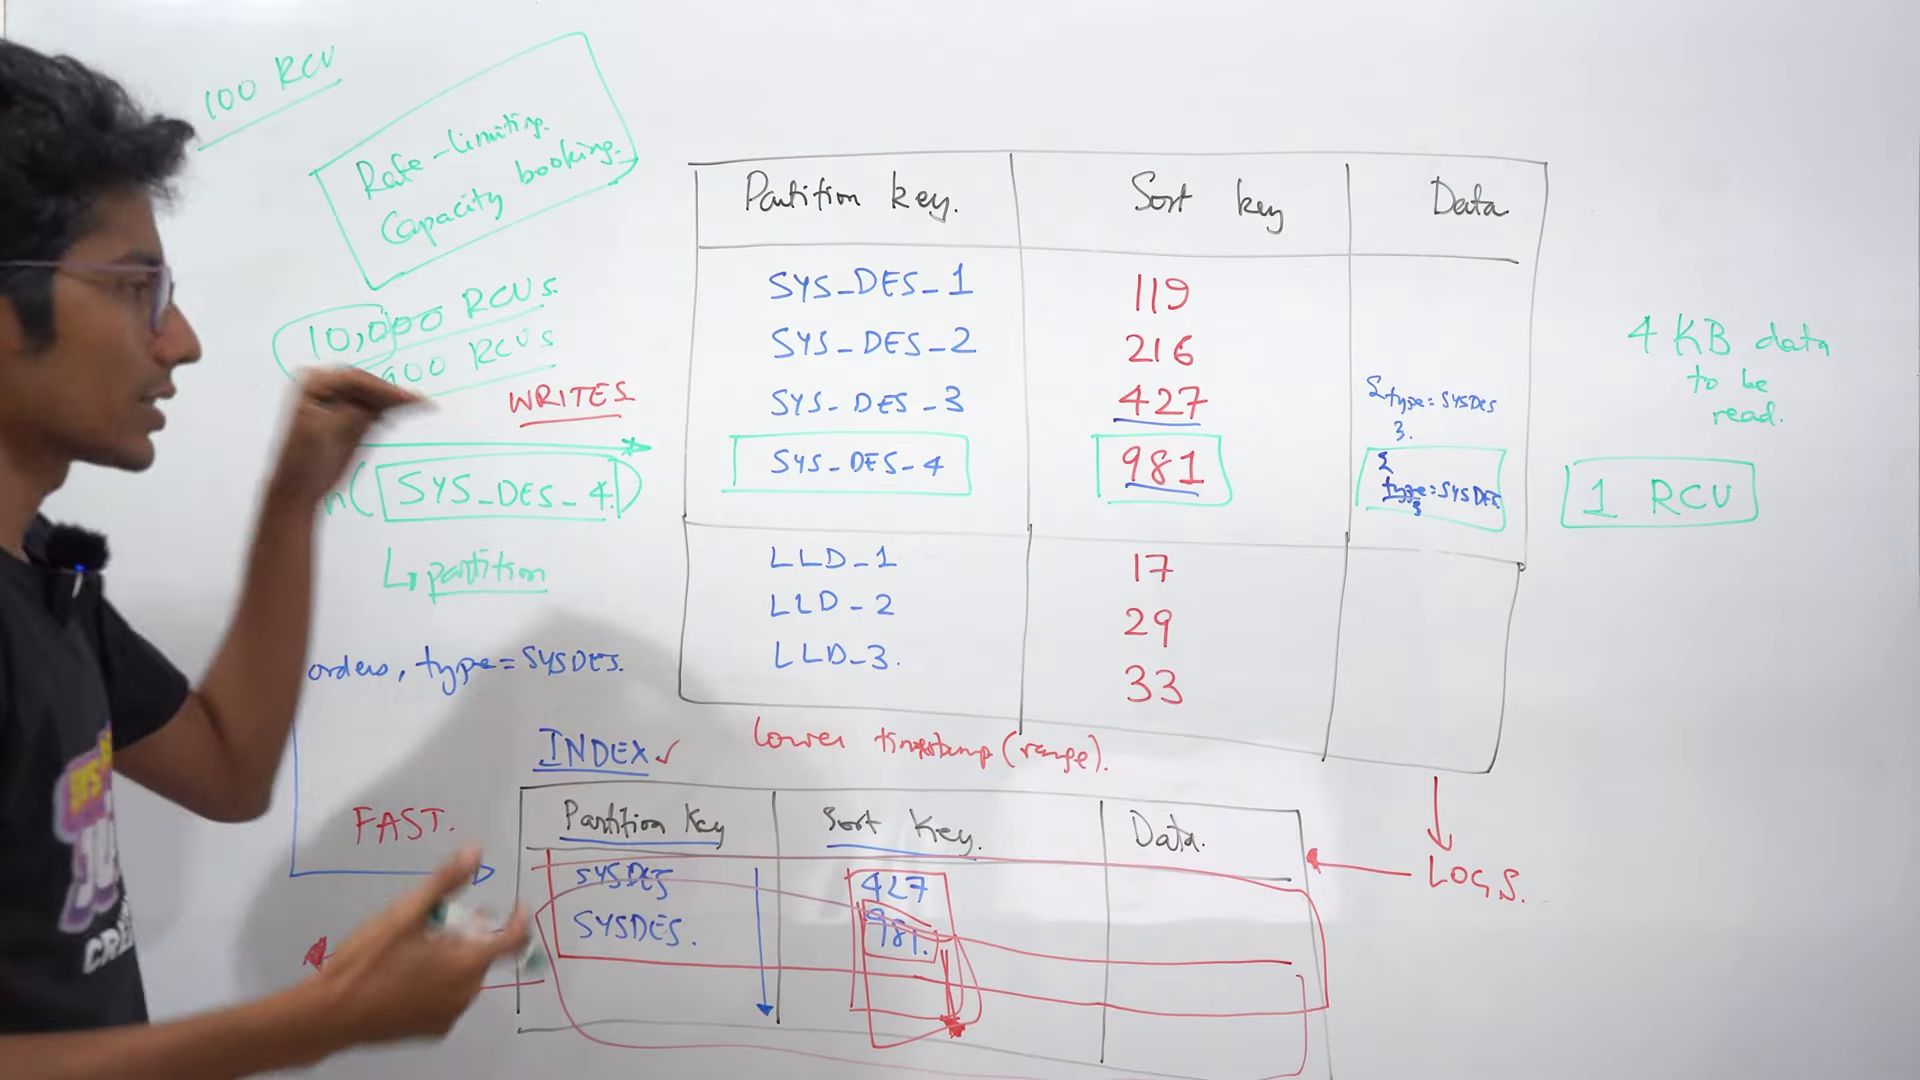 100 RCU
Rate-limiting.
Capacity booking.
10,000 RCUs.
RCUs
WRITES
SYS_DES_4
partition
orders, type=SYSDES.
FAST.
Partition key. Sort key Data
SYS_DES_1 119
SYS_DES_2 216
SYS_DES_3 427 {type: SYSDES
}.
SYS_DES_4 981 {
type: SYSDES
}
LLD_1 17
LLD_2 29
LLD_3. 33
4 KB data
to be
read.
1 RCU
INDEX ✓
lower timestamp (range).
Partition Key Sort Key. Data.
SYSDES 427
SYSDES. 981.
LOGS.